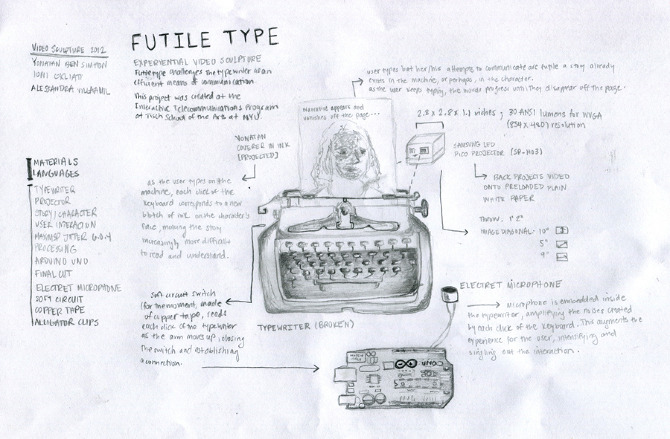 VIDEO SCULPTURE 2012
YONATAN BEN SIMHON
ALESSANDRA VILLAAMIL
FUTILE TYPE
EXPERIENTIAL VIDEO SCULPTURE
Futile type challenges the typewriter as an
efficient means of communication
This project was created at the
Interactive Telecommunications Program
at Tisch School of the Arts at NYU
user types but his/her attempts to communicate are futile a story already
exists in the machine, or perhaps, in the character.
as the user keeps typing, the words progress until they disappear off the page.
Narrative appears and
vanishes off the page...
2.8 x 2.8 x 1.1 inches, 30 ANSI lumens for WVGA
(854 x 480) resolution
SAMSUNG LED
PICO PROJECTOR (SP-H03)
BACK PROJECTS VIDEO
ONTO PRELOADED PLAIN
WHITE PAPER
IMAGE DIAGONAL: 10"
5"
9"
YONATAN
COVERED IN INK
[PROJECTED]
as the user types on the
machine, each click of the
keyboard corresponds to a new
blotch of ink on the character's
face, making the story
increasingly more difficult
to read and understand.
MATERIALS
LANGUAGES
TYPEWRITER
PROJECTOR
STORY/CHARACTER
USER INTERACTION
MAX/MSP JITTER 6.0.4
PROCESSING
ARDUINO UNO
FINAL CUT
ELECTRET MICROPHONE
SOFT CIRCUIT
COPPER TAPE
ALLIGATOR CLIPS
Soft circuit switch
made
of copper tape, sends
each click of the typewriter
as the arm moves up, closing
the switch and establishing
a connection.
TYPEWRITER (BROKEN)
ELECTRET MICROPHONE
Microphone is embedded inside
the typewriter, amplifying the noises created
by each click of the keyboard. This augments the
experience for the user, magnifying and
singling out the interaction.
UNO